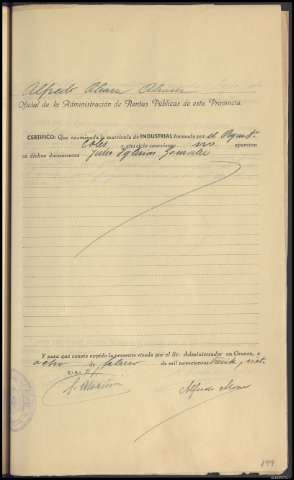 Alfredo
Oficial de la Administración de Rentas Públicas de esta Provincia.
CERTIFICO: Que examinada la matrícula de INDUSTRIAS formada por el Ayunt.
Coles y ejercicio corriente no aparece
en dichos documentos Julio Iglesias González
Y para que conste expido la presente visada por el Sr. Administrador en Orense, a
ocho de febrero de mil novecientos treinta y
Alfredo